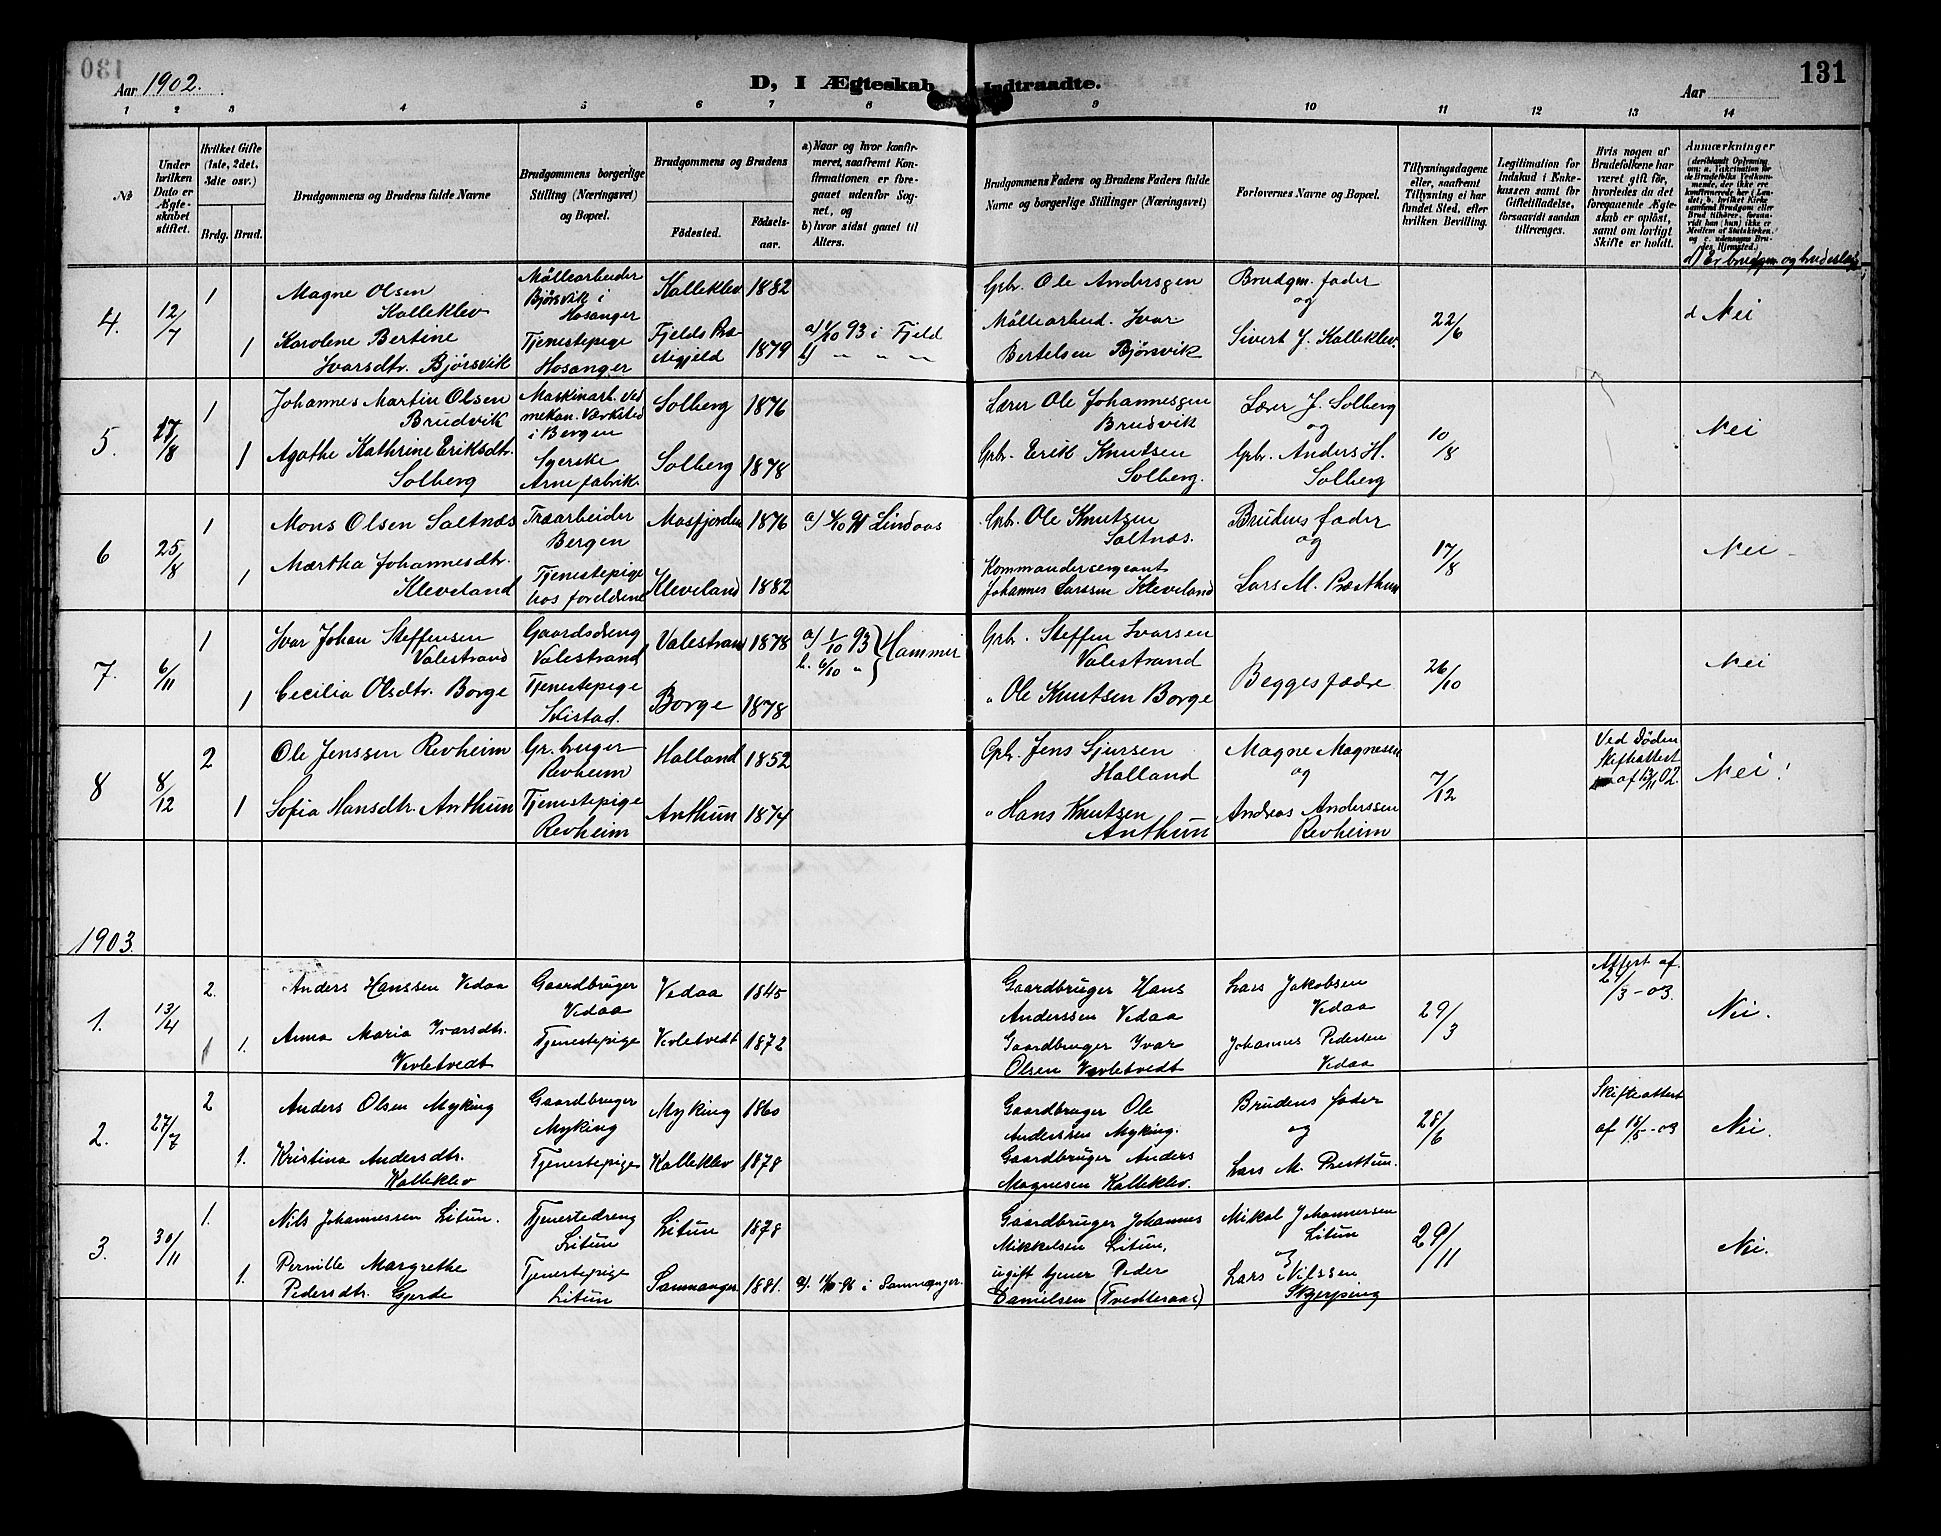 Aar 1902.
D, I Ægteskab Indtraadte.
131
Aar
1 2 3 4 5 6 7 8 9 10 11 12 13 14
No
Under hvilken Dato er Ægteskabet stiftet.
Hvilket Gifte (1ste, 2det, 3die osv.)
Brdg. Brud.
Brudgommens og Brudens fulde Navne
Brudgommens borgerlige Stilling (Næringsvei) og Bopæl.
Brudgommens og Brudens
Födested.
Födselsaar.
a) Naar og hvor konfirmeret, saafremt Konfirmationen er foregaaet udenfor Sognet, og
b) hvor sidst gaaet til Alters.
Brudgommens Faders og Brudens Faders fulde Navne og borgerlige Stillinger (Næringsvei)
Forlovernes Navne og Bopæl.
Tillysningsdagene eller, saafremt Tillysning ei har fundet Sted, efter hvilken Bevilling.
Legitimation for Indskud i Enkekassen samt for Giftetilladelse, forsaavidt saadan tiltrænges.
Hvis nogen af Brudefolkene har været gift för, hvorledes da det foregaaende Ægteskab er oplöst, samt om lovligt Skifte er holdt.
Anmærkninger
d) Er brudgm og brud esleg
4. 12/7 1 Magne Olsen Kalleklev Möllearbeider Bjørsvik i Hosanger Kalleklev 1882 Gbr. Ole Andersen Brudgm. fader og 22/6 d Nei
1 Karolene Bertine Ivarsdtr. Bjørsvik Tjenestepige Hosanger Fjelds Præstegjeld 1879 a) 1/10 93 i Fjeld b) " " " Möllearbeid. Ivar Bertelsen Bjørsvik Sivert J. Kalleklev.
5. 17/8 1 Johannes Martin Olsen Brudvik Maskinarb. ved mekan. Værksted i Bergen Solberg 1876 Lærer Ole Johannesen Brudvik Lærer J. Solberg og 10/8 Nei
1 Agathe Kathrine Eriksdtr. Solberg Syerske Arne fabrik. Solberg 1878 Gbr. Erik Knutsen Solberg. Gbr. Anders H. Solberg
6 25/8 1 Mons Olsen Saltnæs Træarbeider Bergen Masfjorden 1876 a) 4/10 91 Lindaas Gbr. Ole Knutsen Saltnæs. Brudens fader og 17/8 Nei
1 Martha Johannesdtr. Kleveland Tjenestepige hos foreldrene Kleveland 1882 Kommandersergeant Johannes Larssen Kleveland Lars M. Præsthun
7. 6/11 1 Ivar Johan Steffensen Valestrand Gaardsdreng Valestrand Valestrand 1878 a) 1/10 93 b. 6/10 " } Hammer Gbr. Steffen Ivarsen Valestrand Begges fædre 26/10 Nei
1 Cecilia Olsdtr. Borge Tjenestepige Borge 1878 " Ole Knutsen Borge
8 8/12 2 Ole Jenssen Revheim Gr. bruger Revheim Halland 1852 Gbr. Jens Sjursen Halland Magne Magnessen og 7/12 Ved Døden Skifteattest af 13/11 02. Nei!
1 Sofia Hansdtr. Anthun Tjenestepige Revheim Anthun 1874 " Hans Knutsen Anthun Andreas Anderssen Revheim
1903.
1. 13/4 2. Anders Hanssen Vedaa Gaardbruger Vedaa Vedaa 1845 Gaardbruger Hans Anderssen Vedaa Lars Jakobsen Vedaa 29/3 Attest af 21/3-03. Nei.
1. Anna Maria Ivarsdtr. Vevletvedt Tjenestepige Vevletvedt 1872 Gaardbruger Ivar Olsen Vevletvedt Johannes Pedersen Vedaa
2. 27/7 2 Anders Olsen Myking Gaardbruger Myking Myking 1860 Gaardbruger Ole Anderssen Myking. Brudens fader og 28/6 Skifteattest af 18/5-03 Nei.
1. Kristina Andersdtr. Kalleklev Tjenestepige Kalleklev 1878 Gaardbruger Anders Magnesen Kalleklev. Lars M. Presttun.
3. 30/11 1. Nils Johannessen Litun. Tjenestedreng Litun Litun 1878 Gaardbruger Johannes Mikkelsen Litun, Mikal Johannessen Litun og 29/11 Nei.
1. Pernille Margrethe Pedersdtr. Gjerde Tjenestepige Litun Samnanger 1881. a). 11/10-96 i Samnanger. ugift tjener Peder Danielsen (Tvedteraas) Lars Nilssen Skjerping